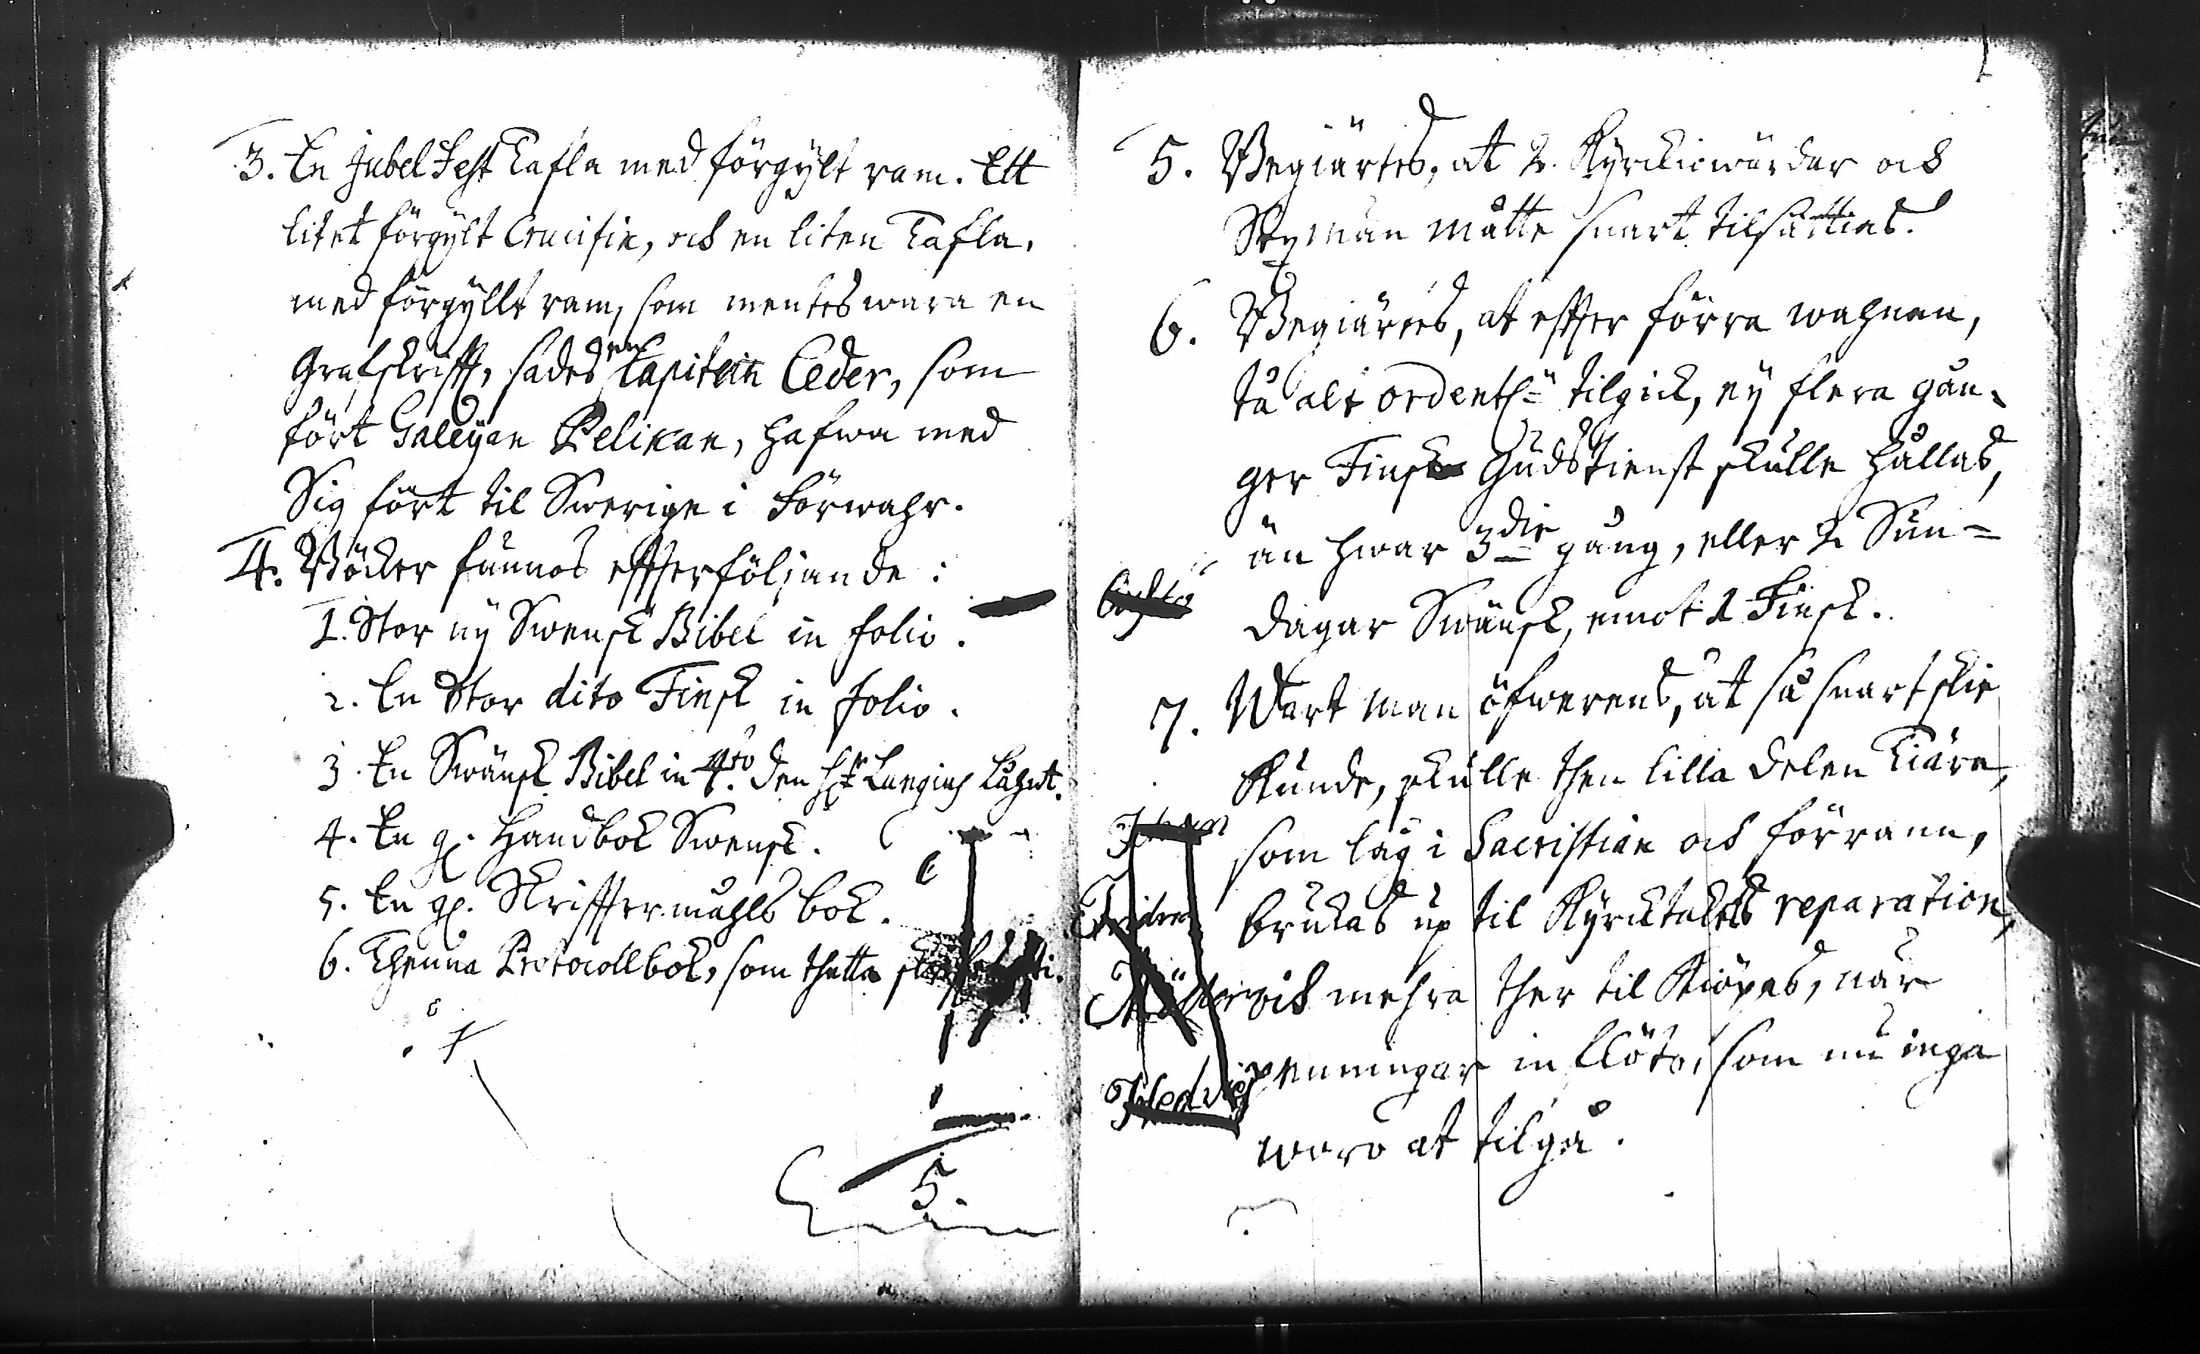 3. En Jubel Fest Tafla med förgÿlt ram. Ett
litet förgÿlt Crucifix, och en liten Tafla,
med förgÿllt ram, som mentes wara en
Grafskrifft, sades en Capitein Ceder, som
fört Galeÿan Pelikan, hafwa med
Sig fört til Swerige i förwahr.
4. Böcker funnos effterföljande:
1. Stor nÿ Swensk Bibel in folio.
2. En Stor dito Finsk in folio.
3. En Swänsk Bibel in 4to. den Hr Langius
4. En gl. Handbok Swensk.
5. En gl. Skrifftermåhls bok.
6. Thenna Protocollbok, som thetta
5.
5. Begiärtes, at 2. Kÿrckiowärdar och
Sexmän måtte snart tilsättias.
6. Begiärtes, at effter förra wahnan,
tå alt ordentl: tilgick, eÿ flera gån-
ger Finsk Gudstienst skulle hållas,
än hwar 3die gång, eller 2 Sun=
dagar Swänsk, emot 1 Finsk.
7. Wart man öfwerens, at så snart skie
kunde, skulle then lilla delen Tiära,
som låg i Sacristian och förrann,
brukas up til Kÿrcktakets reparation,
och mehra ther til kiöpas, när
penningar in flöto, som nu inga
woro at tilgå.
Hedvig